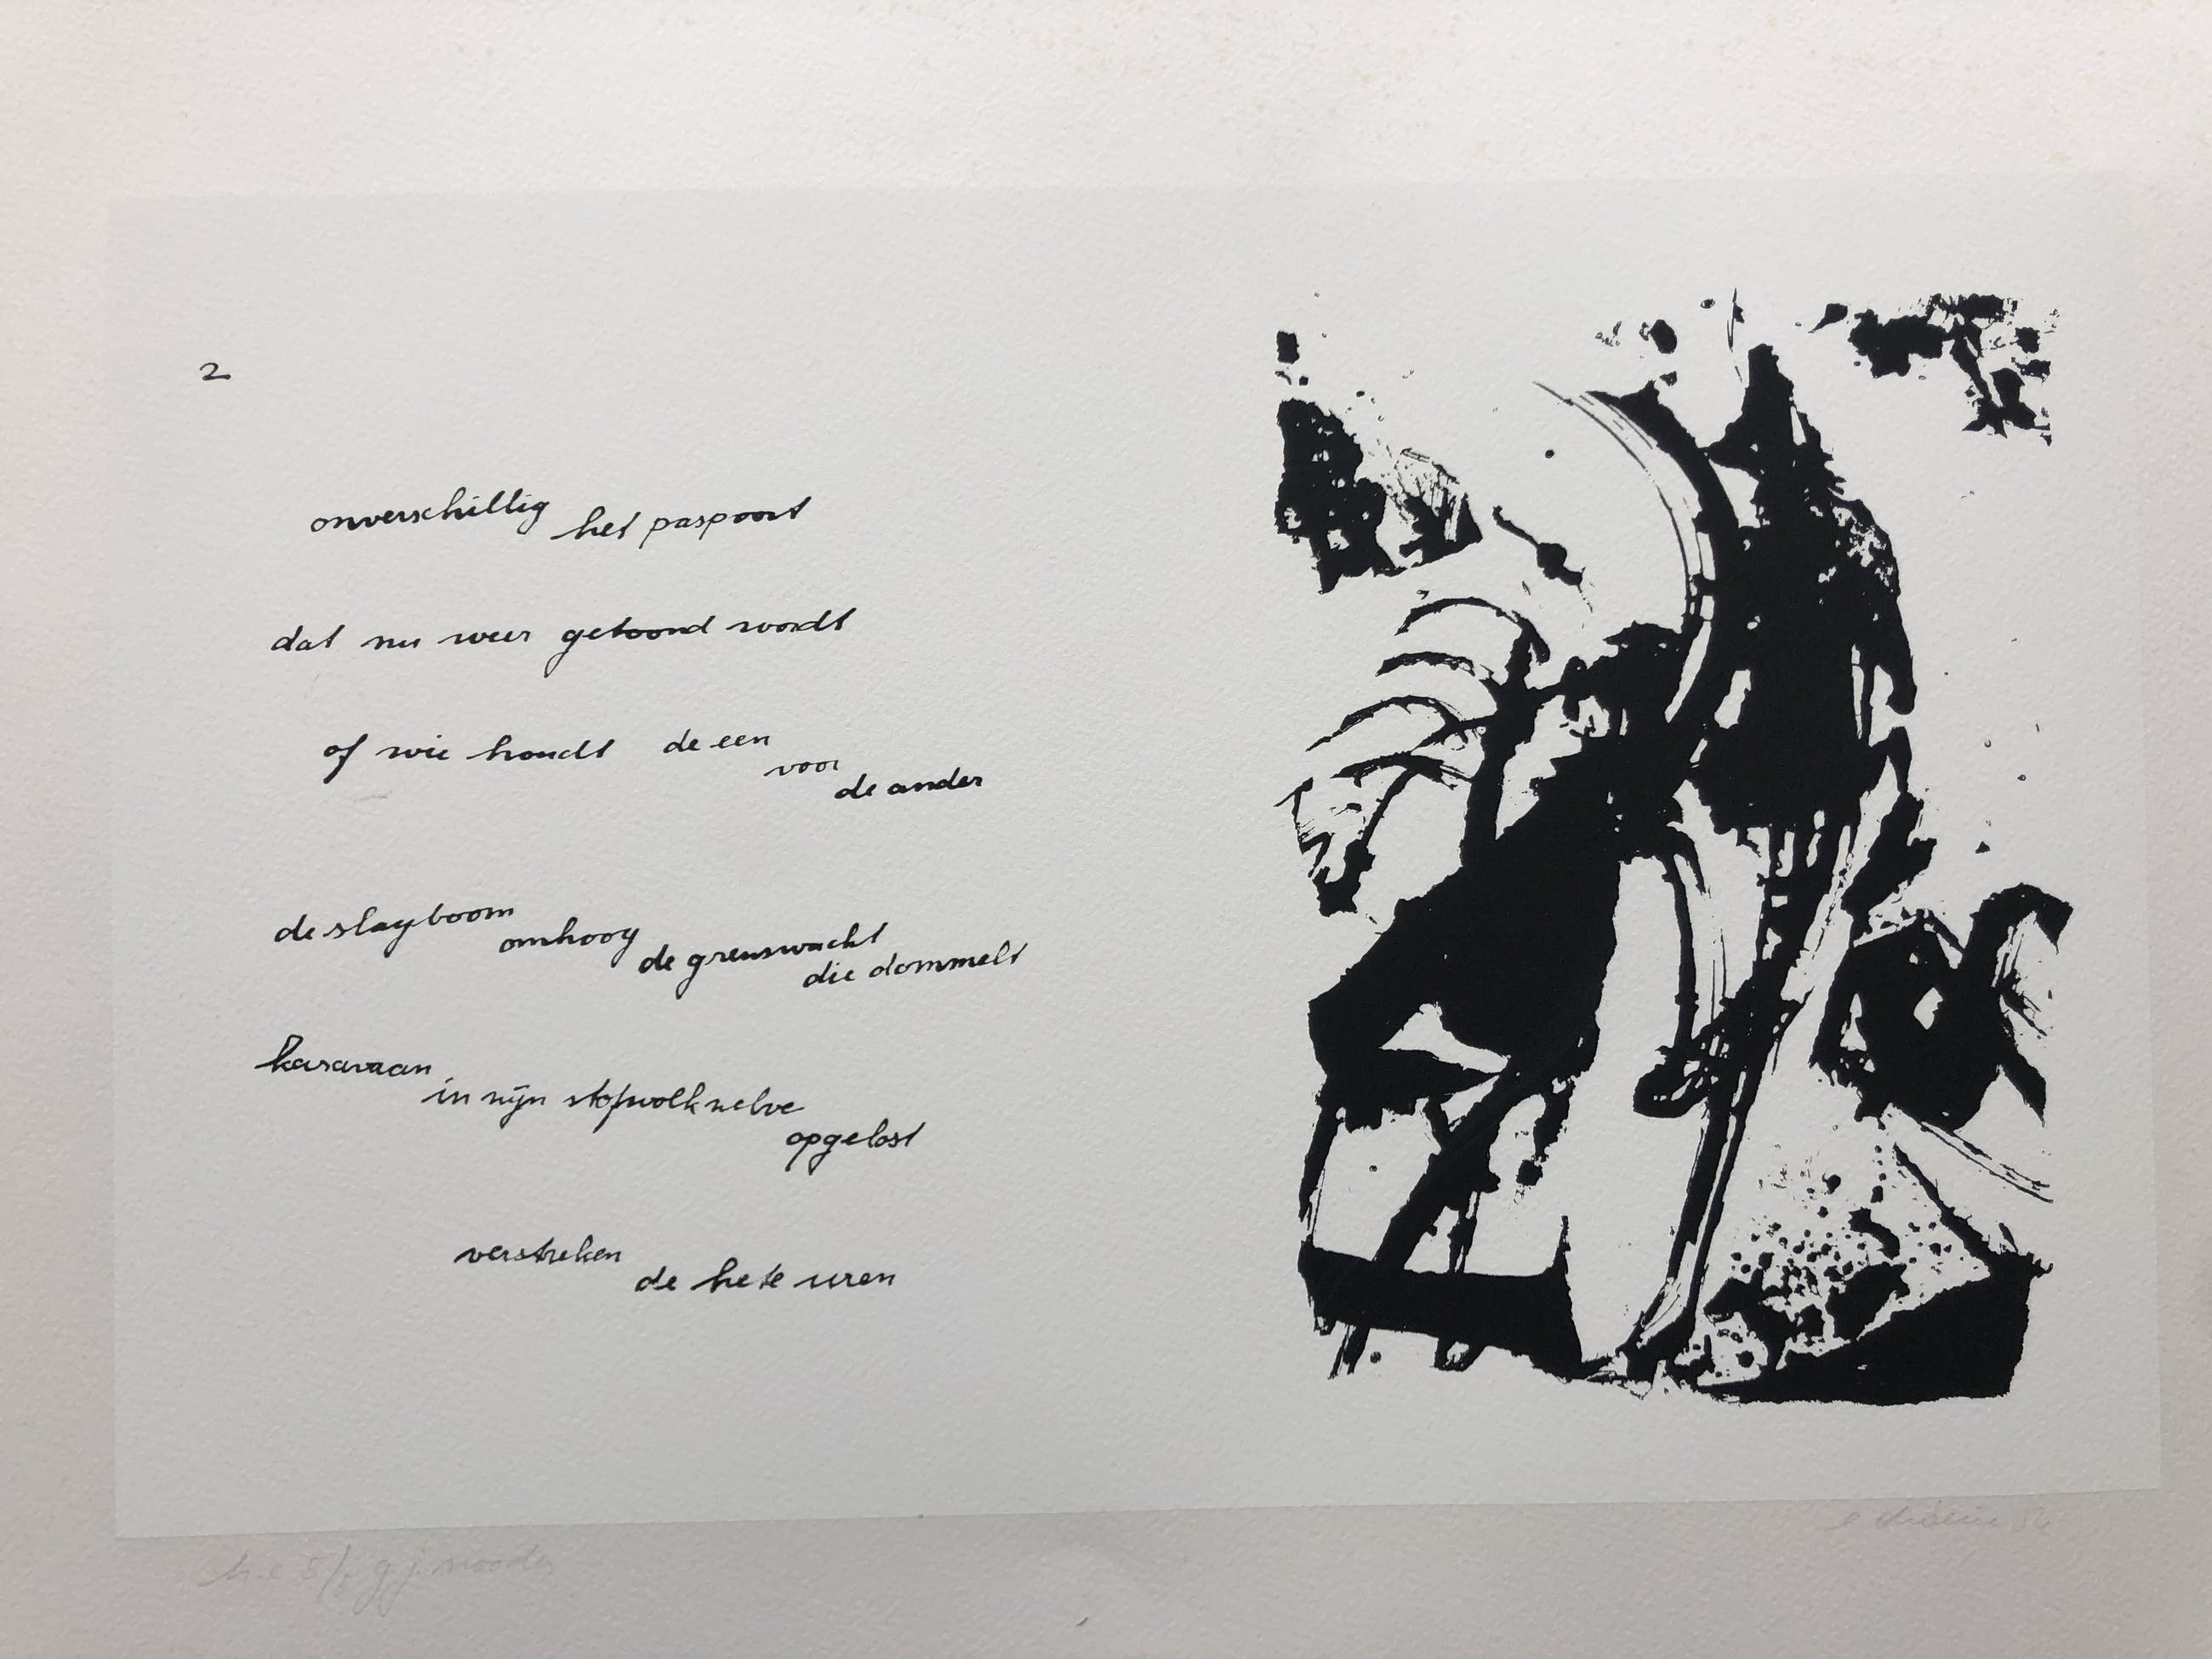 2
onverschillig het paspoort
dat nu weer getoond wordt
of wie houdt de een voor de ander
de slagboom omhoog de grenswacht die dommelt
karavaan in zijn stofwolk zelve opgelost
verstreken de hete uren
h.c 5/